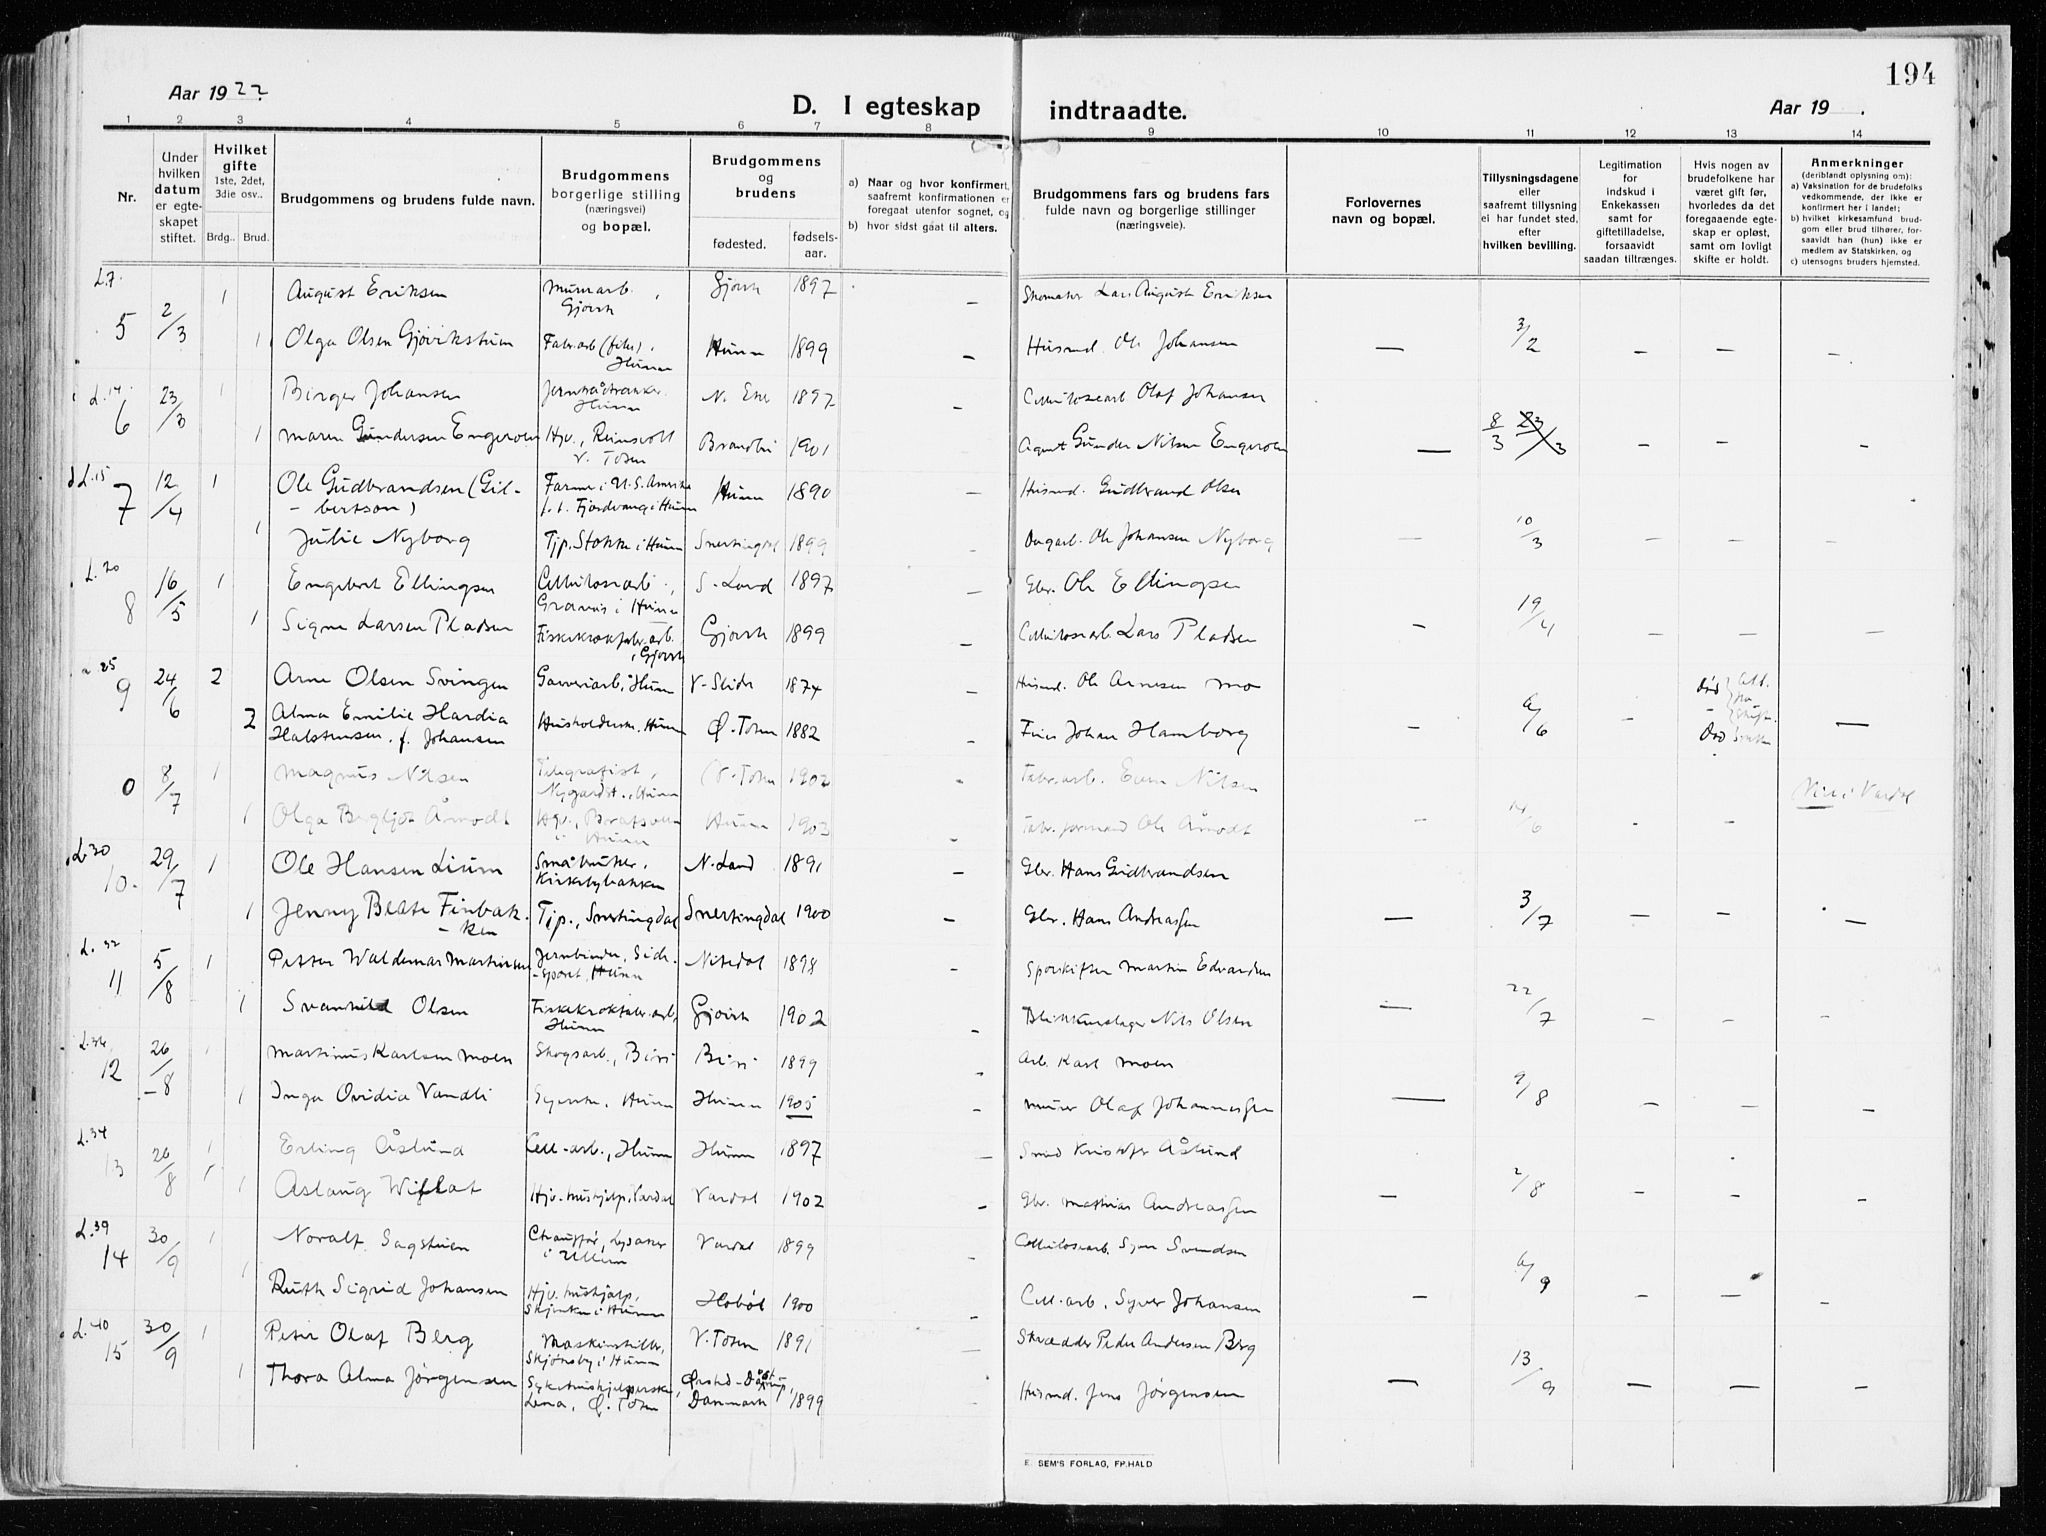 194
Aar 1922.
D. I egteskap indtraadte.
Aar 19 .
1 2 3 4 5 6 7 8 9 10 11 12 13 14
Nr.
Under hvilken datum er egteskapet stiftet.
Hvilket gifte 1ste, 2det, 3die osv..
Brdg.. Brud.
Brudgommens og brudens fulde navn.
Brudgommens borgerlige stilling (næringsvei) og bopæl.
Brudgommens og brudens
fødested. fødselsaar.
a) Naar og hvor konfirmert, saafremt konfirmationen er foregaat utenfor sognet, og
b) hvor sidst gaat til alters.
Brudgommens fars og brudens fars fulde navn og borgerlige stillinger (næringsveie).
Forlovernes navn og bopæl.
Tillysningsdagene eller saafremt tillysning ei har fundet sted, efter hvilken bevilling.
Legitimation for indskud i Enkekassen samt for giftetilladelse, forsaavidt saadan tiltrænges.
Hvis nogen av brudefolkene har været gift før, hvorledes da det foregaaende egteskap er opløst, samt om lovligt skifte er holdt.
Anmerkninger (deriblandt oplysning om):
a) Vaksination for de brudefolks vedkommende, der ikke er konfirmert her i landet;
b) hvilket kirkesamfund brudgom eller brud tilhører, forsaavidt han (hun) ikke er medlem av Statskirken, og
c) utensogns bruders hjemsted.
L.7. 5 2/3 1 August Eriksen Murarb. Gjøvik Gjøvik 1897 – Skomaker Lars August Eriksen
1 Olga Olsen Gjøvikstuen Fabr.arb. Hunn Hunn 1899 – Husmd. Ole Johansen — 3/2 – – –
L.14. 6 23/3 1 Birger Johansen Hunn 1897 – Cellulosearb. Olaf Johansen
1 Maren Gundersen Engeroen Hjv., Reinsvoll V. Toten Brandbu 1901 Agent Gunder Nilsen Engeroen — 8/3 23/3 – – –
L.15 7 12/4 1 Ole Gudbrandsen (Gilbertson) Farmer i U.S. Amerika Fjordvang i Hunn Hunn 1890 – Husmd. Gudbrand Olsen
1 Julie Nyborg Tjp. Stokke i Hunn Snertingdal 1899 – Ole Johansen Nyborg — 10/3 – – –
L.20 8 16/5 1 Engebret Ellingsen Cellulosearb., i Hunn S. Land 1897 – Gbr. Ole Ellingsen
1 Signe Larsen Pladsen Fiskekrokfabr.arb., Gjøvik Gjøvik 1899 – Cellulosearb. Lars Pladsen – 19/4 – – –
25 9 24/6 2 Arne Olsen Svingen Garveriarb., Hunn V-Slidre 1874 – Husmd. Ole Arnesen Mo død
2 Alma Emilie Hardia Halstensen, f. Johansen Husholderske, Hunn Ø. Toten 1882 – Johan Hamborg – 6/6 – død —
0 8/7 1 Magnus Nilsen Telegrafist, Nygardst., Hunn V. Toten 1902 – Fabr.arb. Even Nilsen i Vardal
1 Olga Bergljot Åmodt Hjv., i Hunn Hunn 1903 – Fabr.formand Ole Åmodt – 14/6 – –
L.30 10. 29/7 1 Ole Hansen Lium Småbruker, Kirkebybakken N. Land 1891 – Gbr. Hans Gudbrandsen
1 Jenny Beate Finbakken Tjp., Snertingdal Snertingdal 1900 – Gbr. Hans Andreassen — 3/7 – – –
L.32 11 5/8 1 Petter Waldemar Martinsen Jernbinder, Sidesporet, Hunn Nitedal 1898 – Sporskifter Martin Edvardsen
1 Svanhild Olsen Fiskekrokfabr.arb, Hunn Gjøvik 1902 – Blikkenslager Nils Olsen — 22/7 – – –
L.36 12 26/8 1 Martinus Karlsen Moen Skogsarb., Biri Biri 1899 – Arb. Karl Moen
1 Inga Ovidia Vandli Syerske, Hunn Hunn 1905 – Murer Olaf Johannessen — 9/8 – – –
L.34 13 26/8 1 Erling Åslund Cell-arb., Hunn Hunn 1897 – Smed Kristofer Åslund
1 Aslaug Wiflat Hjv. hushjelp, Vardal Vardal 1902 – Gbr. Mathias Andreassen – 2/8 – – –
L.39 14 30/9 1 Noralf Sagstuen Chauffør, Lysaker i Ullern Vardal 1899 – Cellulosearb. Syver Svendsen
1 Ruth Sigrid Johansen Hjv. hushjelp, i Hunn Hobøl 1900 – Cell.arb. Syver Johansen – 6/9 – – –
L.40 15 30/9 1 Peter Olaf Berg Maskinstiller, Skjønsby i Hunn V. Toten 1891 – Skrædder Peder Andersen Berg
1 Thora Alma Jørgensen Sykehushjelperske, Lena, Ø. Toten Danmark 1899 Husmd. Jens Jørgensen — 13/9 – – –
E. SEM'S FORLAG, FR.HALD